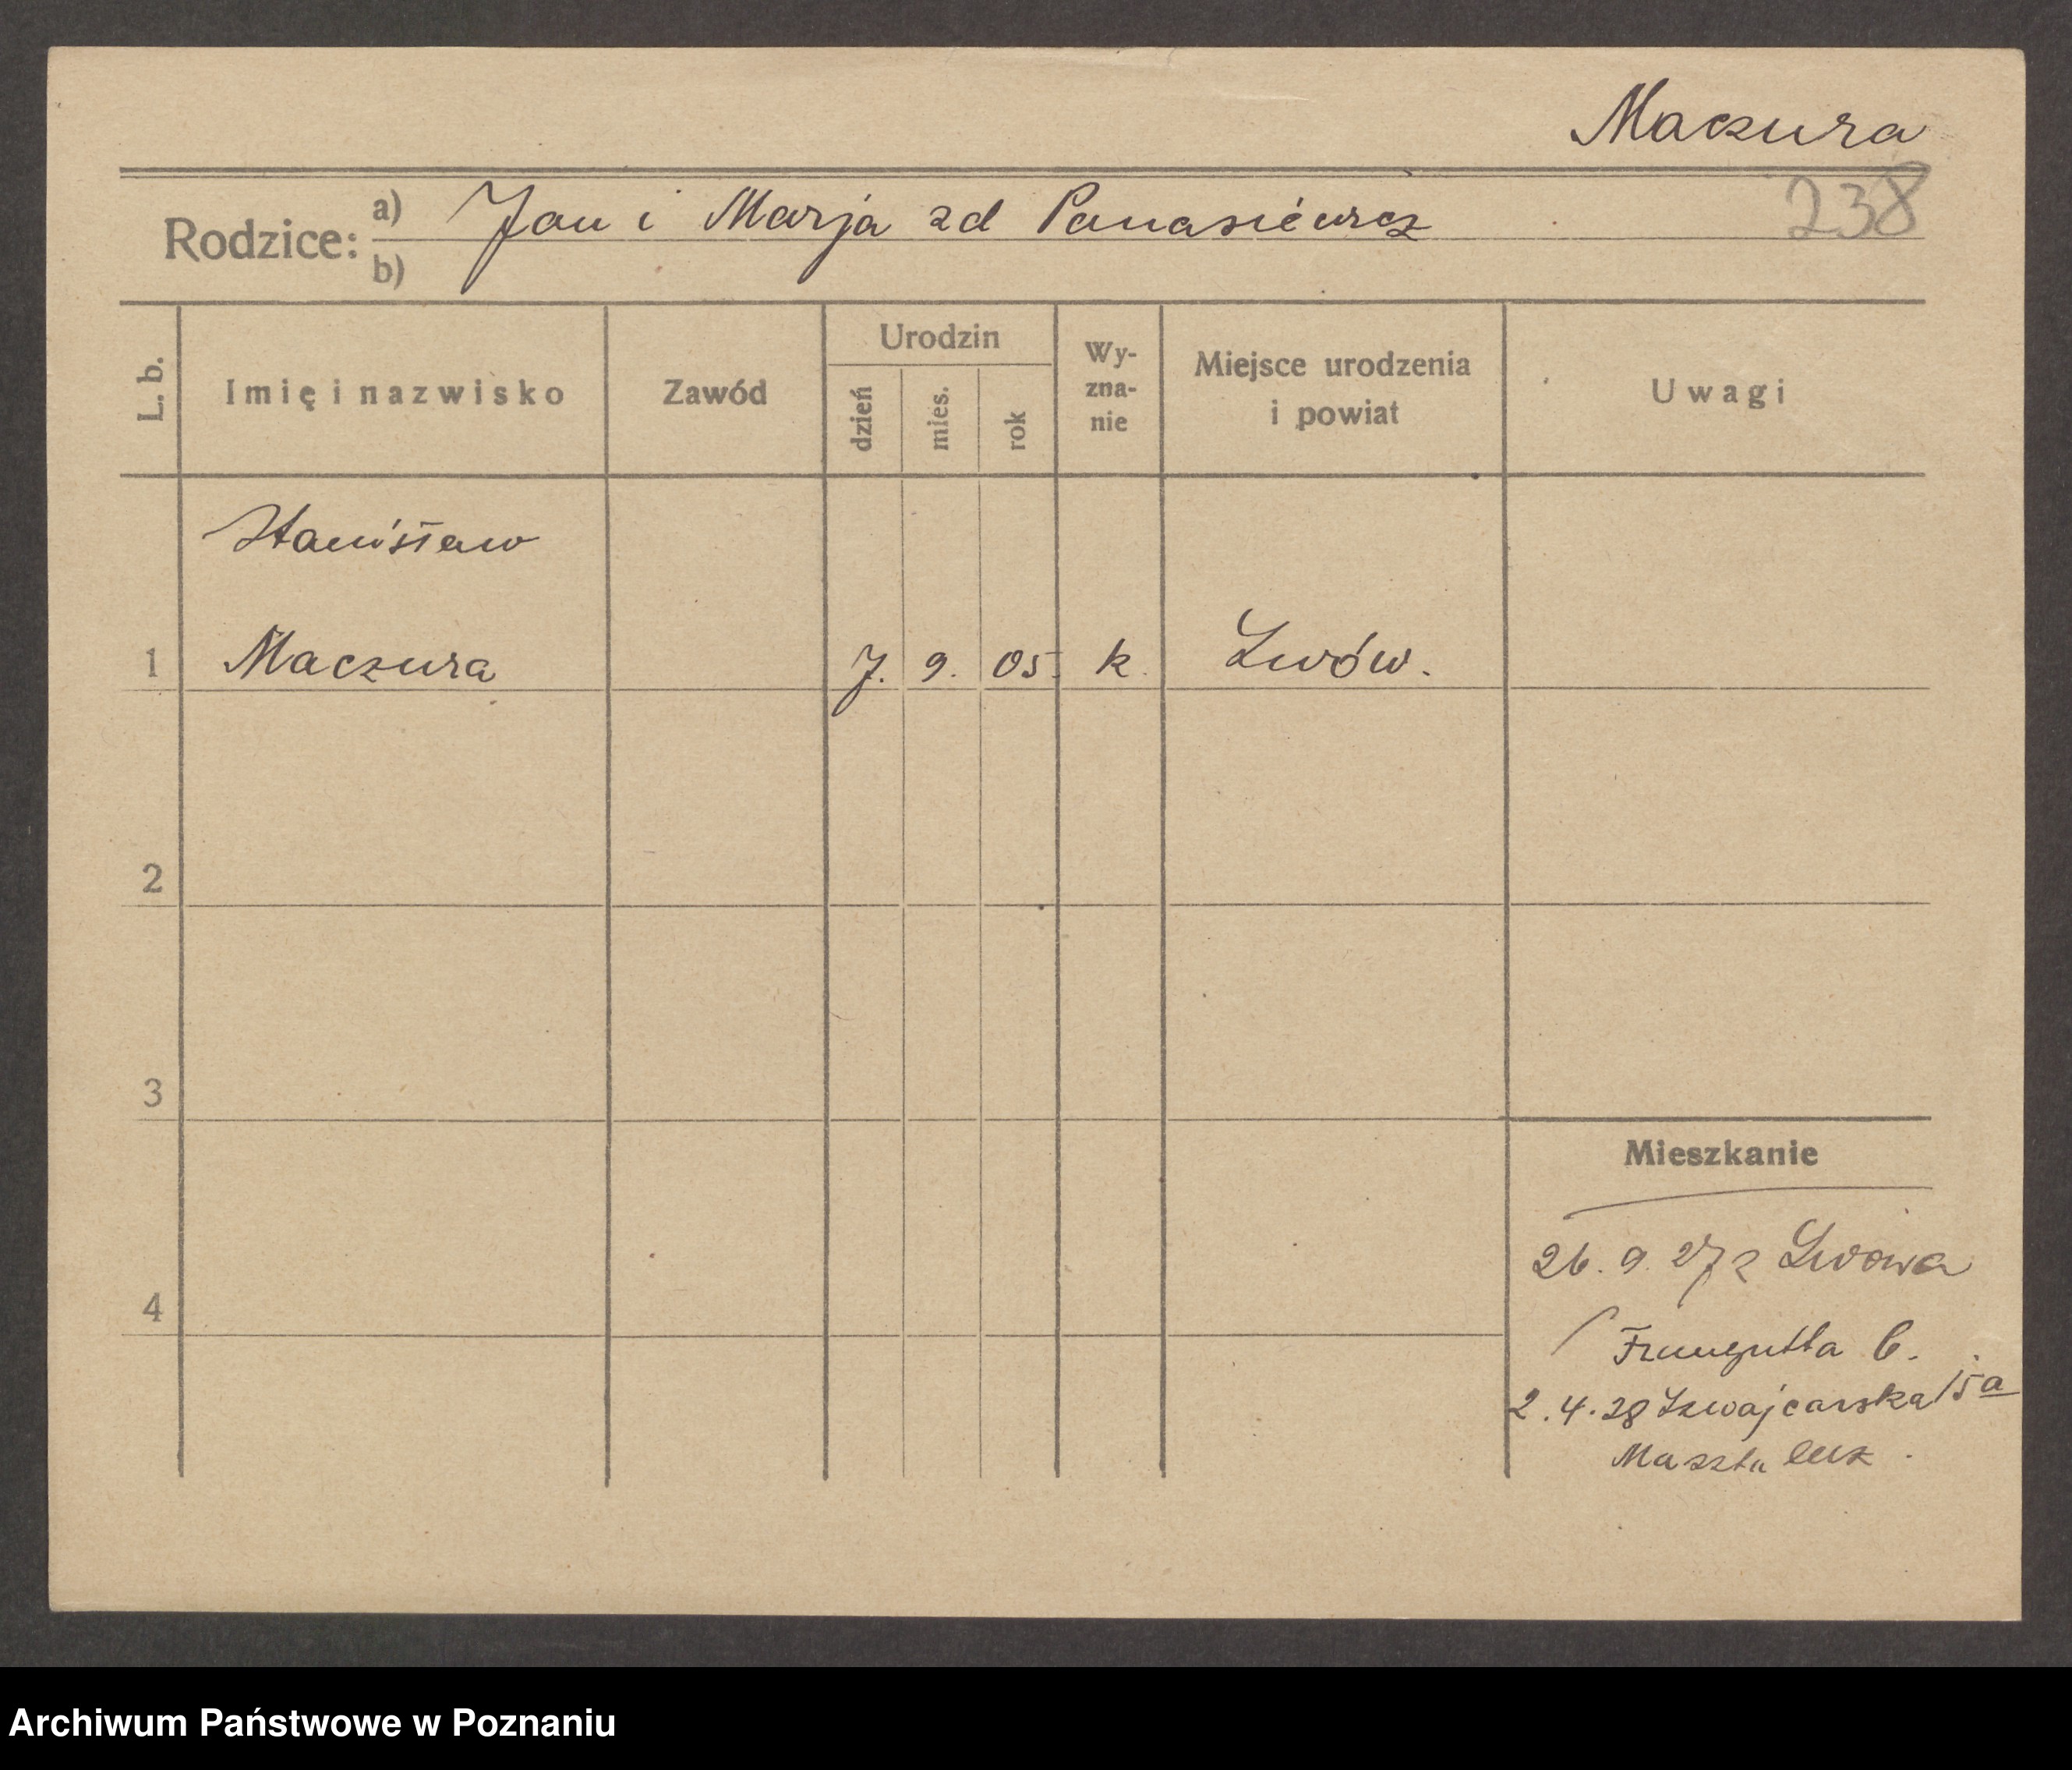 Maczura
238
Rodzice: a) Jan i Marja zd Panasiéwicz
b)
L. b.
Imię i nazwisko
Zawód
Urodzin
dzień
mies.
rok
Wy-
zna-
nie
Miejsce urodzenia
i powiat
Uwagi
Stanisław
1 Maczura 7. 9. 05. k. Lwów.
2
3
Mieszkanie
26. 9. 27 z Lwowa
4
6.
2.4.28 Szwajcarska 15a
Archiwum Państwowe w Poznaniu